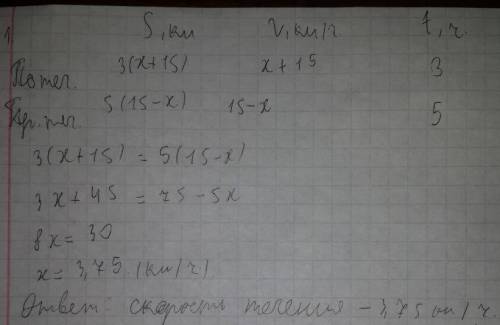 1 S, км V, км/ч t, ч.
По теч. 3(x+15) x+15 3
Пр. теч. 5(15-x) 15-x 5
3(x+15) = 5(15-x)
3x+45 = 75-5x
8x = 30
x = 3,75 (км/ч)
Ответ: скорость течения - 3,75 км/ч.